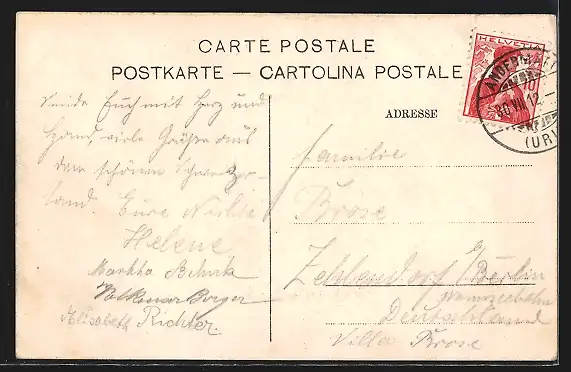 CARTE POSTALE
POSTKARTE — CARTOLINA POSTALE
HELVETIA
10
ANDERMATT
30 VII 12
(URI)
ADRESSE
Sende Euch mit Herz und
Hand, viele Grüße aus
dem schönen Schweizer-
land. Eure
Helene
Martha
Volkmar Berger
Elisabeth Richter.
Familie
Brose
Zehlendorf b/Berlin
Wannseebahn
Deutschland
Villa Brose